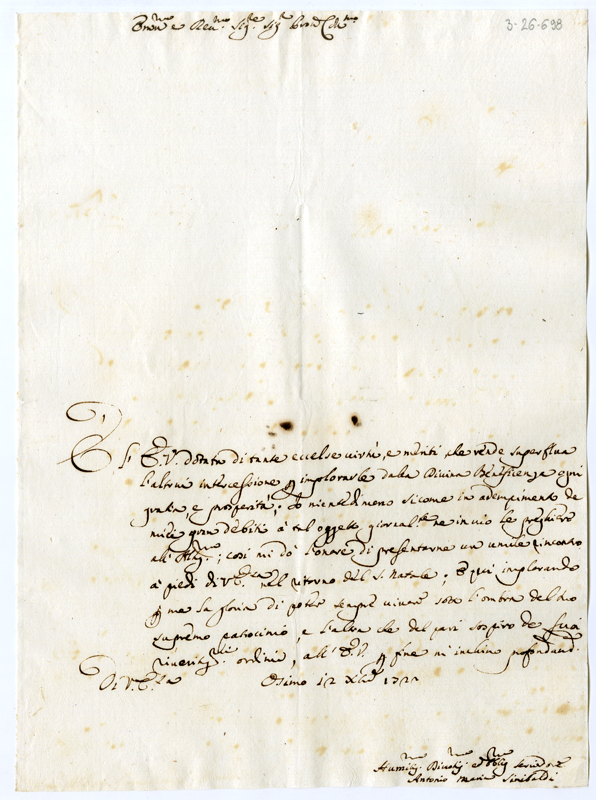 3-26-698
Em.mo e Rev.mo Sig.re Sig.r Pron. Col.mo
È l'E.V. dotata di tante eccelse virtù, e meriti che rende superflua
l'altrui intercessione p implorarle dalla Divina Beneficenza ogni
gratia, e prosperità; Io nientedimeno sicome in adempimento de
miei gran debiti à tal oggetto giornal.te ne invio le preghiere
all' Altis.mo; così mi dò l'onore di presentarne un umile rincontro
à piedi di V.E.za nel ritorno del S. Natale; E qui implorando
p me la gloria di poter sempre vivere sotto l'ombra del suo
supremo patrocinio, e l'altra che del pari sospiro de suoi
riveritis.mi ordini, all' E.V. p fine mi inchino profondam.
Di V.E.za Osimo 12 Xbre 172
Humilis.mo Divotis.mo ed Oblig.mo Servid.re
Antonio Maria Sinibaldi